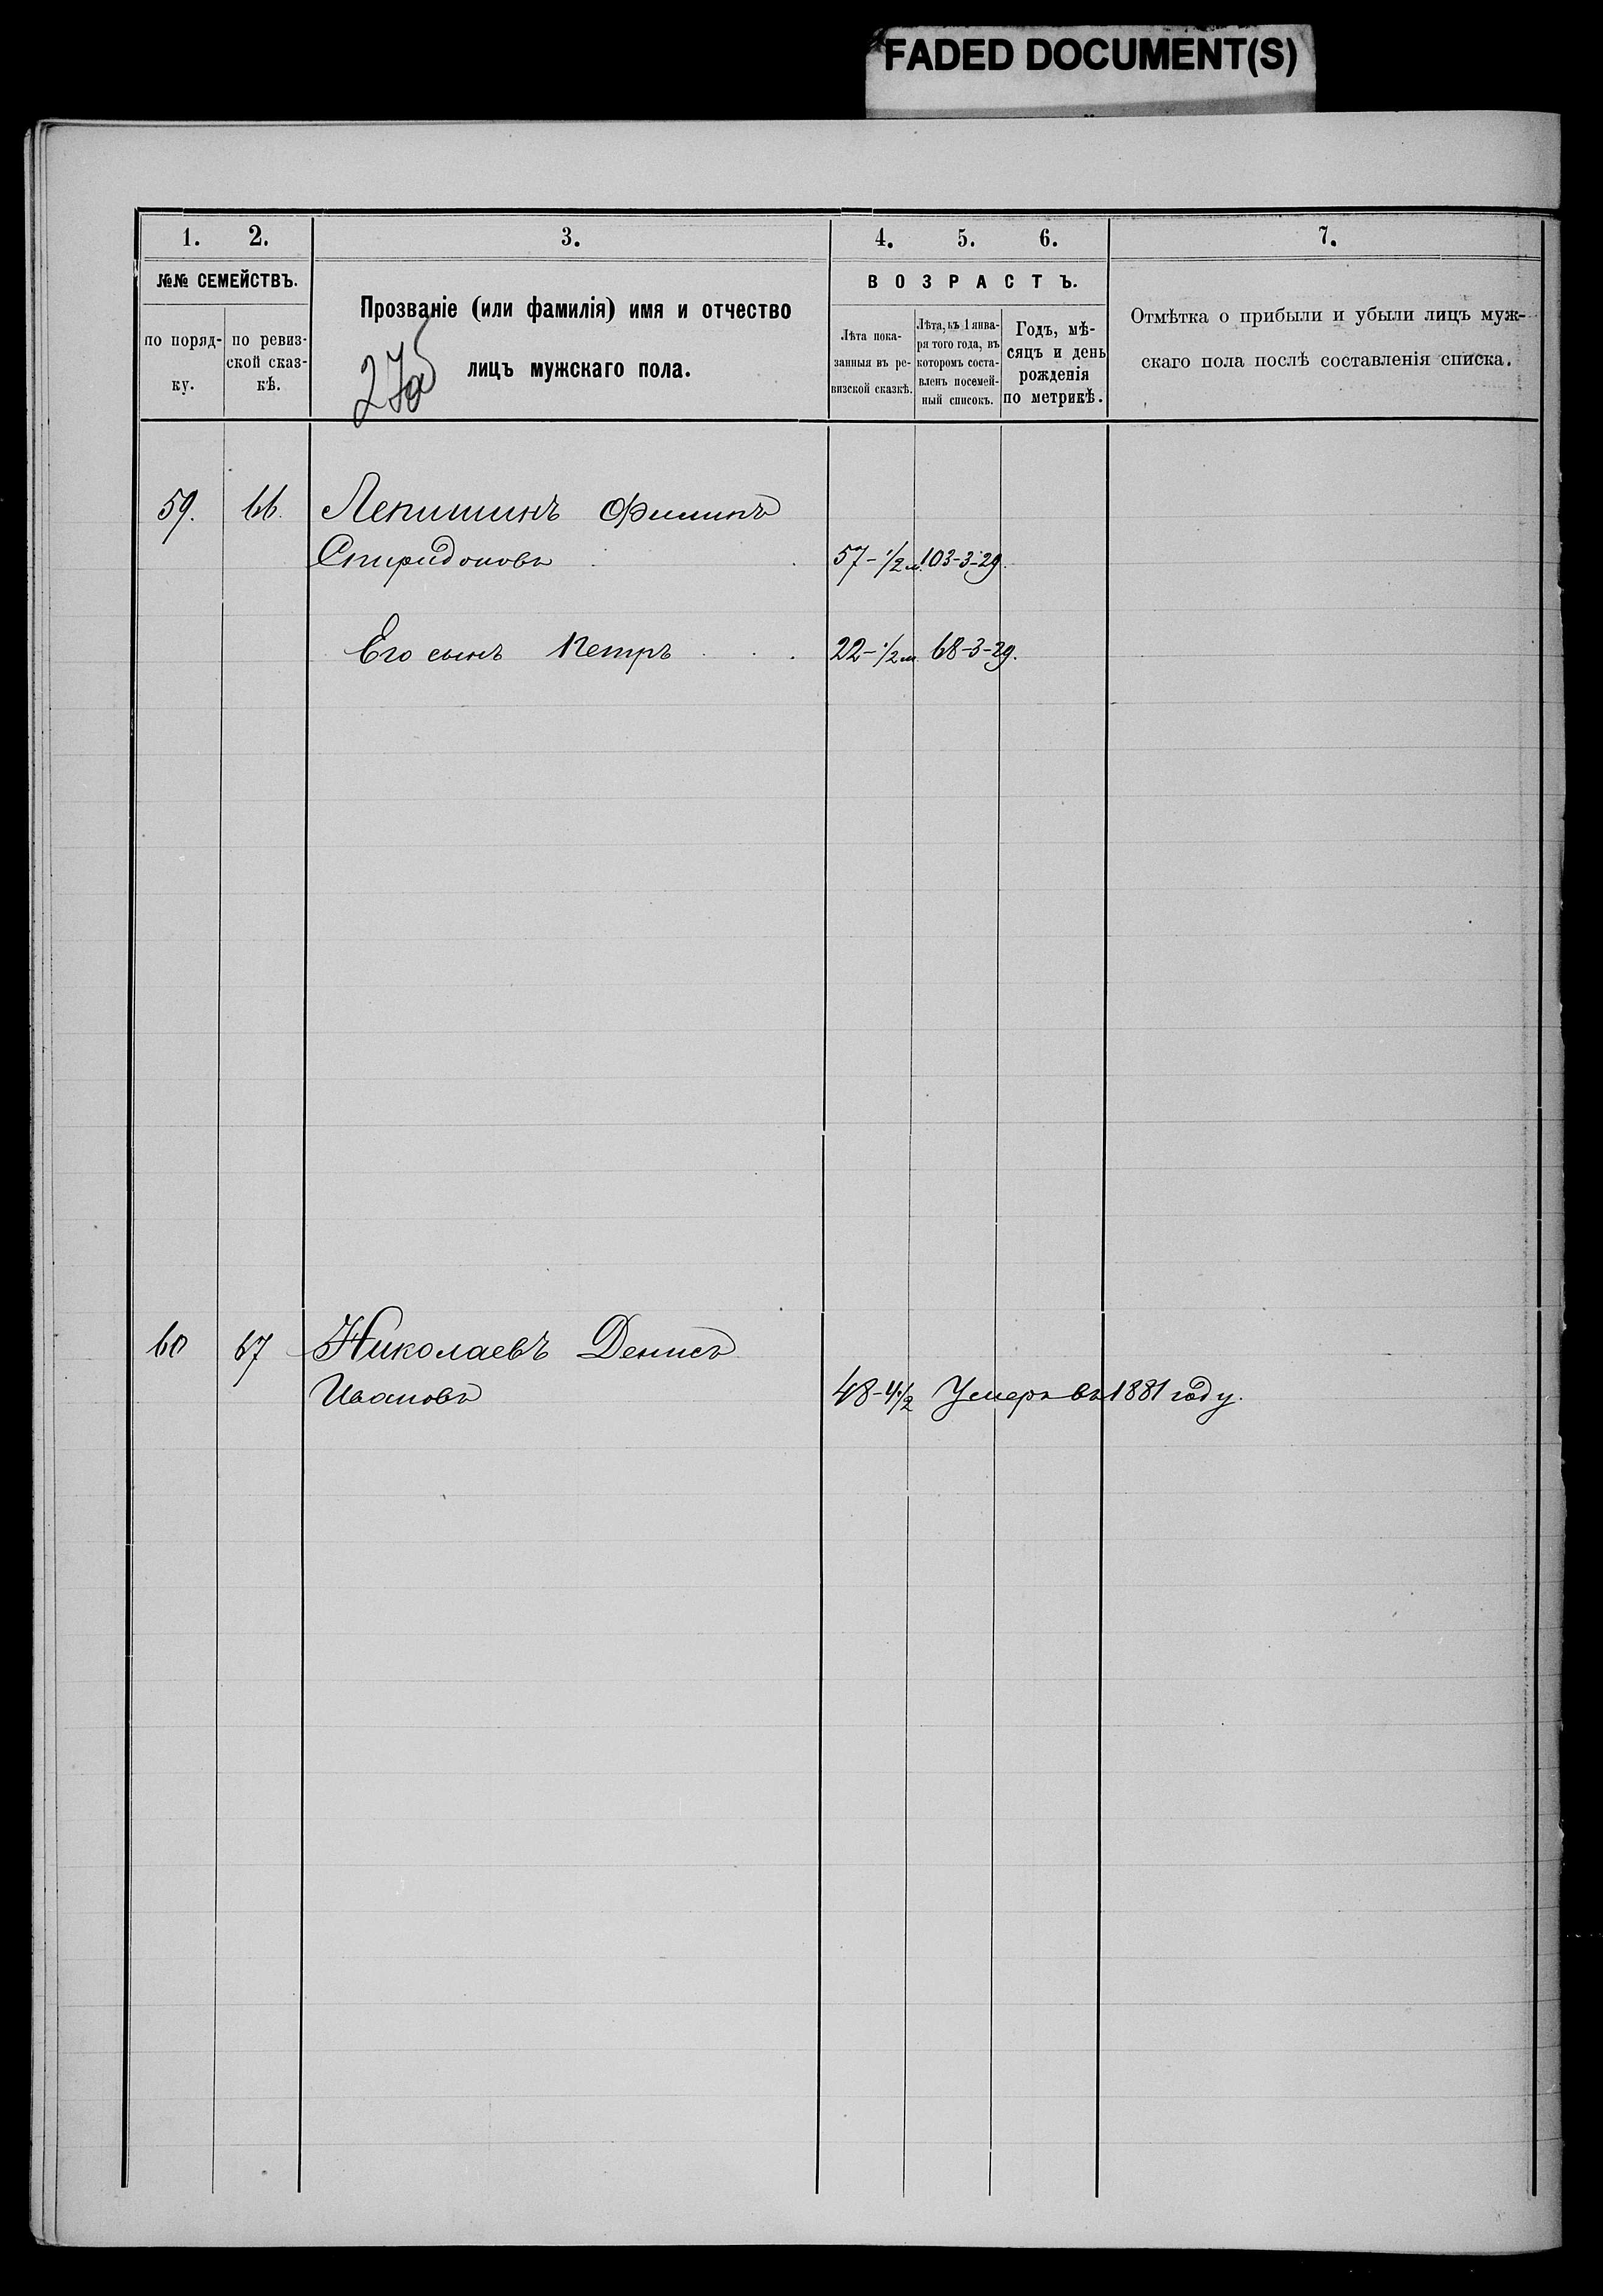 FADED DOCUMENT(S)
1. 2. 3. 4. 5. 6. 7.
№№ СЕМЕЙСТВЪ.
по поряд-
ку.
по ревиз-
ской сказ-
кѣ.
Прозваніе (или фамилія) имя и отчество
лицъ мужскаго пола.
ВОЗРАСТЪ.
Лѣта пока-
занныя въ ре-
визской сказкѣ.
Лѣта, къ 1 янва-
ря того года, въ
которомъ соста-
вленъ посемей-
ный списокъ.
Годъ, мѣ-
сяцъ и день
рожденія
по метрикѣ.
Отмѣтка о прибыли и убыли лицъ муж-
скаго пола послѣ составленія списка.
59. 66. Лепишинъ Филипъ
Спиридоновъ 57-1/2 м. 103-3-29.
Его сынъ Петръ 22-1/2 м. 68-3-29.
60 67 Николаевъ Денисъ
Ивановъ 48-4 1/2 Умеръ въ 1881 году.